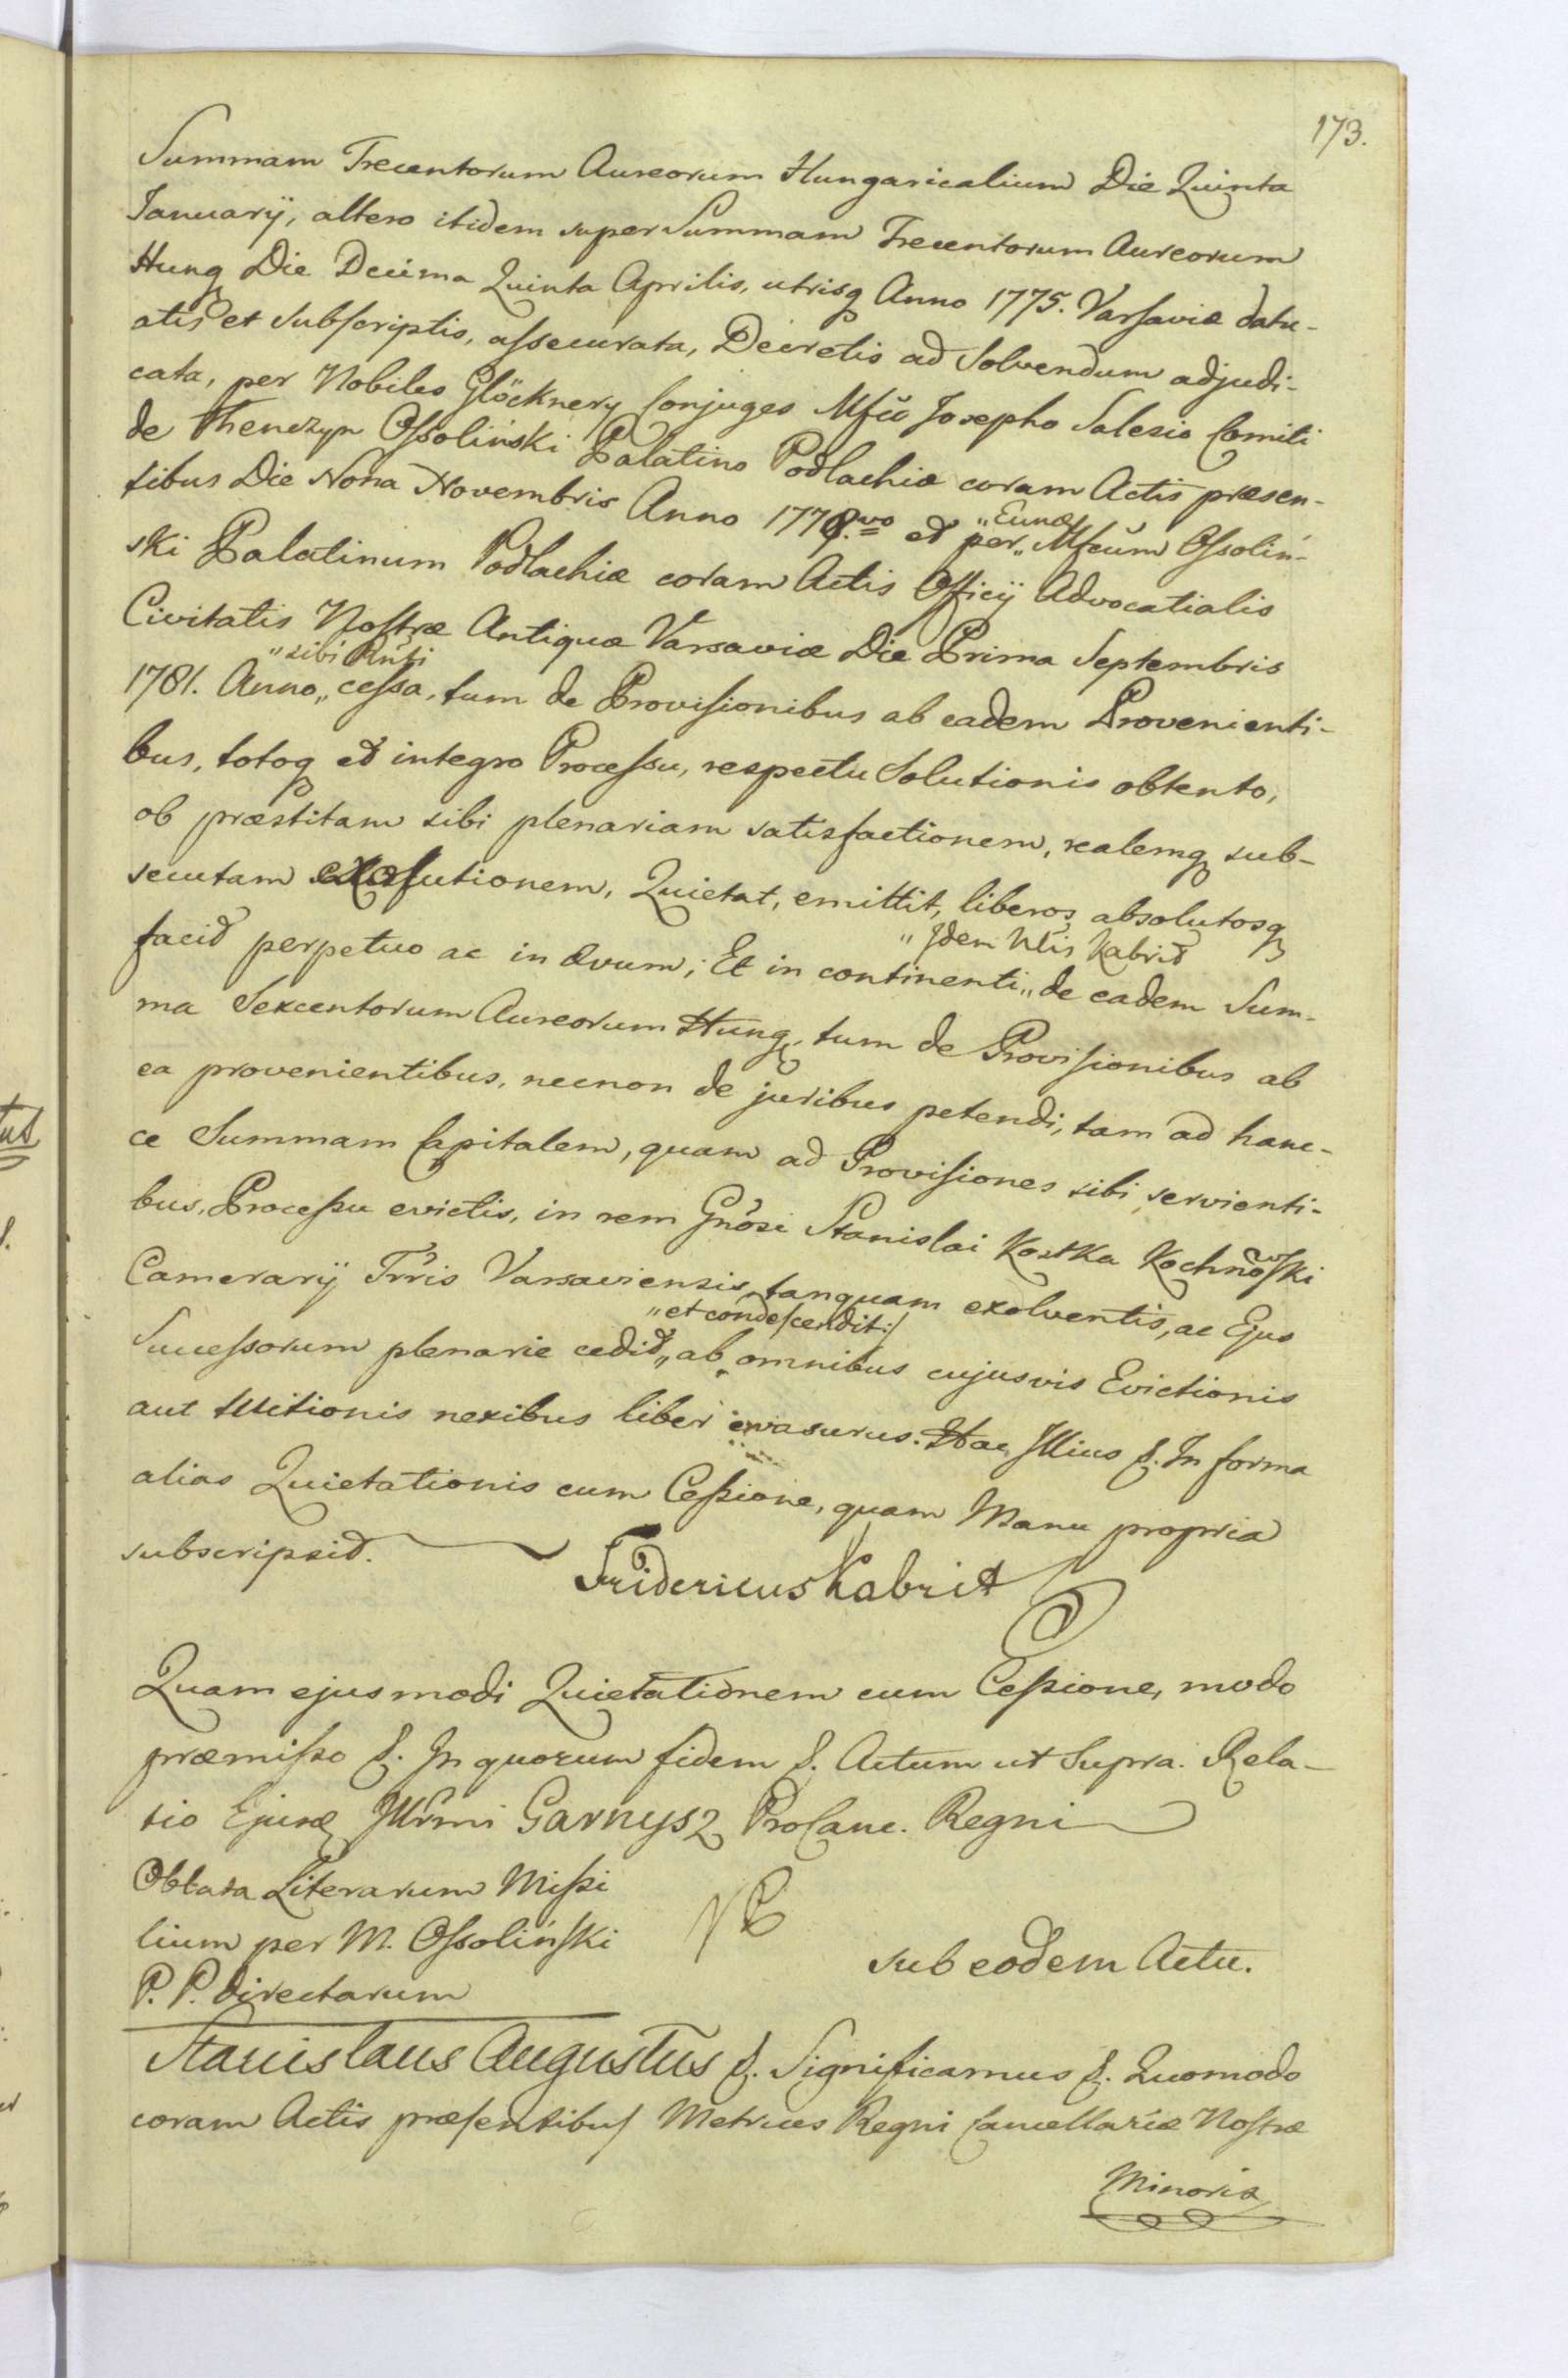 173.
Summam Trecentorum Aureorum Hungaricalium Die Quinta
Januarij, altero itidem super Summam Trecentorum Aureorum
Hung Die Decima Quinta Aprilis, utrisq Anno 1775. Varsaviæ datu-
atis et subscriptis, assecurata, Decretis ad solvendum adjudi-
cata, per Nobiles Glöcknery Conjuges Mfco Josepho Salesio Comiti
de Thenczyn Ossoliński Palatino Podlachiæ coram Actis præsen-
tibus Die Nona Novembris Anno 1778.vo et per „Eund„ Mfcum Ossolin-
ski Palatinum Podlachiæ coram Actis Officij Advocatialis
Civitatis Nostræ Antiquæ Varsaviæ Die Prima Septembris
1781. Anno „sibi Rnti„ cessa, tum de Provisionibus ab eadem Provenienti-
bus, totoq et integro Processu, respectu Solutionis obtento,
ob præstitam sibi plenariam satisfactionem, realemq sub-
secutam exolutionem, Quietat, emittit, liberos, absolutosq
facit perpetuo ac in ævum; Et in continenti „Idem Nlis Kabrit„ de eadem Sum-
ma Sexcentorum Aureorum Hung, tum de Provisionibus ab
ea provenientibus, necnon de juribus petendi, tam ad hanc-
ce Summam Capitalem, quam ad Provisiones sibi servienti-
bus, Processu evictis, in rem Gnosi Stanislai Kostka Kochnowski
Camerarij Trris Varsaviensis tanquam exolventis, ac Ejus
Successorum plenarie cedit „et condescendit:/ ab omnibus cujusvis Evictionis
aut tuitionis nexibus liber evasurus. Hac Illius &. In forma
alias Quietationis cum Cessione, quam Manu propria
subscripsit.
Fridericus Kabrit
Quam ejusmodi Quietationem cum Cessione, modo
præmisso &. In quorum fidem &. Actum ut Supra. Rela-
tio Ejusd Illrmi Garnysz ProCanc. Regni
Oblata Literarum Missi
lium per M. Ossoliński
P. P. directarum
sub eodem Actu.
Stanislaus Augustus &. Significamus &. Quomodo
coram Actis præsentibus Metrices Regni Cancellariæ Nostræ
Minoris